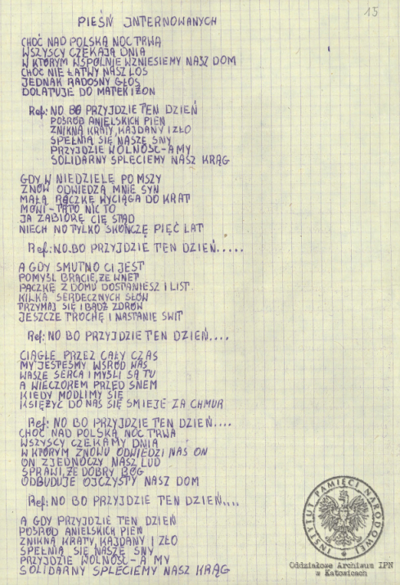 15
PIEŚŃ INTERNOWANYCH
CHOĆ NAD POLSKĄ NOC TRWA
WSZYSCY CZEKAJĄ DNIA
W KTÓRYM WSPÓLNIE WZNIESIEMY NASZ DOM
CHOĆ NIE ŁATWY NASZ LOS
JEDNAK RADOSNY GŁOS
DOLATUJE DO MATEK I ŻON
Ref: NO BO PRZYJDZIE TEN DZIEŃ
POŚRÓD ANIELSKICH PIEŃ
ZNIKNĄ KRATY, KAJDANY I ZŁO
SPEŁNIĄ SIĘ NASZE SNY
PRZYJDZIE WOLNOŚĆ-A MY
SOLIDARNY SPLECIEMY NASZ KRĄG
GDY W NIEDZIELĘ PO MSZY
ZNÓW ODWIEDZĄ MNIE SYN
MAŁĄ RĄCZKĘ WYCIĄGA DO KRAT
MÓWI-TATO NIC TO
JA ZABIORĘ CIĘ STĄD
NIECH NO TYLKO SKOŃCZĘ PIĘĆ LAT
Ref: NO.BO PRZYJDZIE TEN DZIEŃ.....
A GDY SMUTNO CI JEST
POMYŚL BRACIE, ŻE WNET
PACZKĘ Z DOMU DOSTANIESZ I LIST
KILKA SERDECZNYCH SŁÓW
TRZYMAJ SIĘ I BĄDŹ ZDRÓW
JESZCZE TROCHĘ I NASTANIE ŚWIT
Ref: NO BO PRZYJDZIE TEN DZIEŃ....
CIĄGLE PRZEZ CAŁY CZAS
MY JESTEŚMY WŚRÓD WAS
WASZE SERCA I MYŚLI SĄ TU
A WIECZOREM PRZED SNEM
KIEDY MODLIMY SIĘ
KSIĘŻYC DO NAS SIĘ ŚMIEJE ZA CHMUR
Ref: NO BO PRZYJDZIE TEN DZIEŃ....
CHOĆ NAD POLSKĄ NOC TRWA
WSZYSCY CZEKAMY DNIA
W KTÓRYM ZNOWU ODWIEDZI NAS ON
ON ZJEDNOCZY NASZ LUD
SPRAWI, ŻE DOBRY BÓG
ODBUDUJE OJCZYSTY NASZ DOM
Ref: NO BO PRZYJDZIE TEN DZIEŃ....
A GDY PRZYJDZIE TEN DZIEŃ
POŚRÓD ANIELSKICH PIEŃ
ZNIKNĄ KRATY, KAJDANY I ZŁO
SPEŁNIĄ SIĘ NASZE SNY
PRZYJDZIE WOLNOŚĆ-A MY
SOLIDARNY SPLECIEMY NASZ KRĄG
INSTYTUT PAMIĘCI NARODOWEJ
Oddziałowe Archiwum IPN
w Katowicach